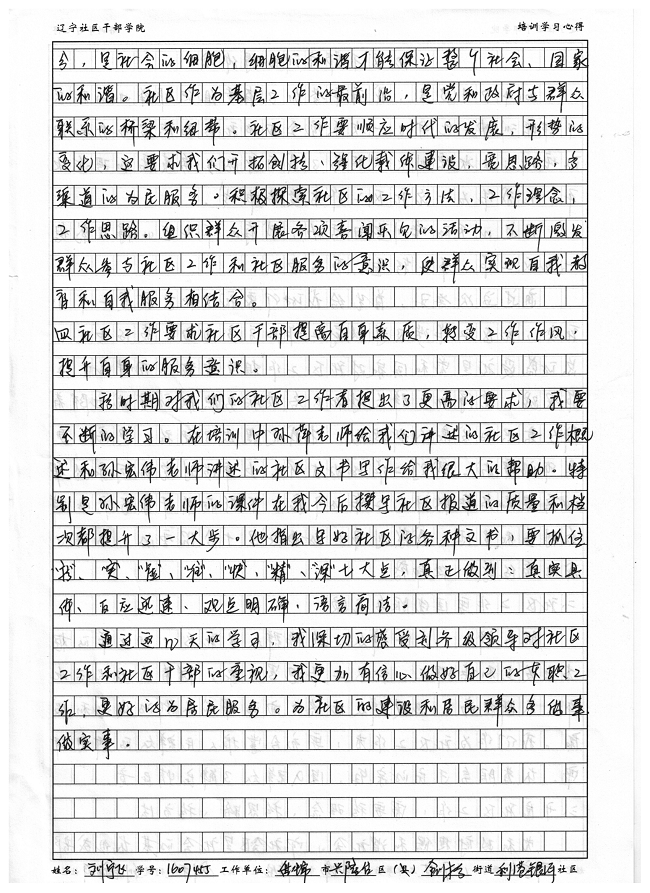 辽宁社区干部学院 培训学习心得
会,是社会的细胞,细胞的和谐才能保证整个社会、国家
的和谐。社区作为基层工作的最前沿,是党和政府与群众
联系的桥梁和纽带。社区工作要顺应时代的发展,形势的
变化,这要求我们开拓创新、强化载体建设,宽思路,多
渠道的为民服务。积极探索社区的工作方法,工作理念,
工作思路。组织群众开展各项喜闻乐见的活动,不断激发
群众参与社区工作和社区服务的意识,使群众实现自我教
育和自我服务相结合。
四社区工作要求社区干部提高自身素质,转变工作作风,
提升自身的服务意识。
新时期对我们的社区工作者提出了更高的要求,我要
不断的学习。在培训中孙萍老师给我们讲述的社区工作概
述和孙宏伟老师讲述的社区文书写作给我很大的帮助。特
别是孙宏伟老师的课件在我今后撰写社区报道的质量和档
次都提升了一大步。他指出写好社区的各种文书,要抓住
"找"、"实"、"短"、"快"、"精"、"深"七大点,真正做到:真实具
体、反应迅速、观点明确、语言简洁。
通过这几天的学习,我深切的感受到各级领导对社区
工作和社区干部的重视,我更加有信心做好自己的本职工
作,更好的为居民服务。为社区的建设和居民群众多做事
做实事。
姓名: 学号:1607455 工作单位: 市兴隆台区(县) 街道 社区